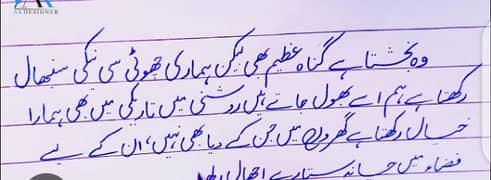 A.K DESIGNER
وہ بخشتا ہے گناہ عظیم بھی لیکن ہماری چھوٹی سی نیکی سنبھال
رکھتا ہے ہم اسے بھول جاتے ہیں روشنی میں تاریکی میں بھی ہمارا
خیال رکھتا ہے گھروں میں جن کے دیا بھی نہیں، ان کے لیے
فضاء میں چاند ستارے اچھال